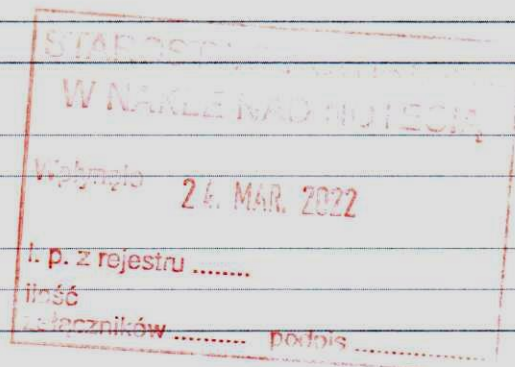 STAROST
W NAKLE NAD NOTECIĄ
Wpłynęło
24. MAR. 2022
l. p. z rejestru ........
ilość
załączników ......... podpis ................